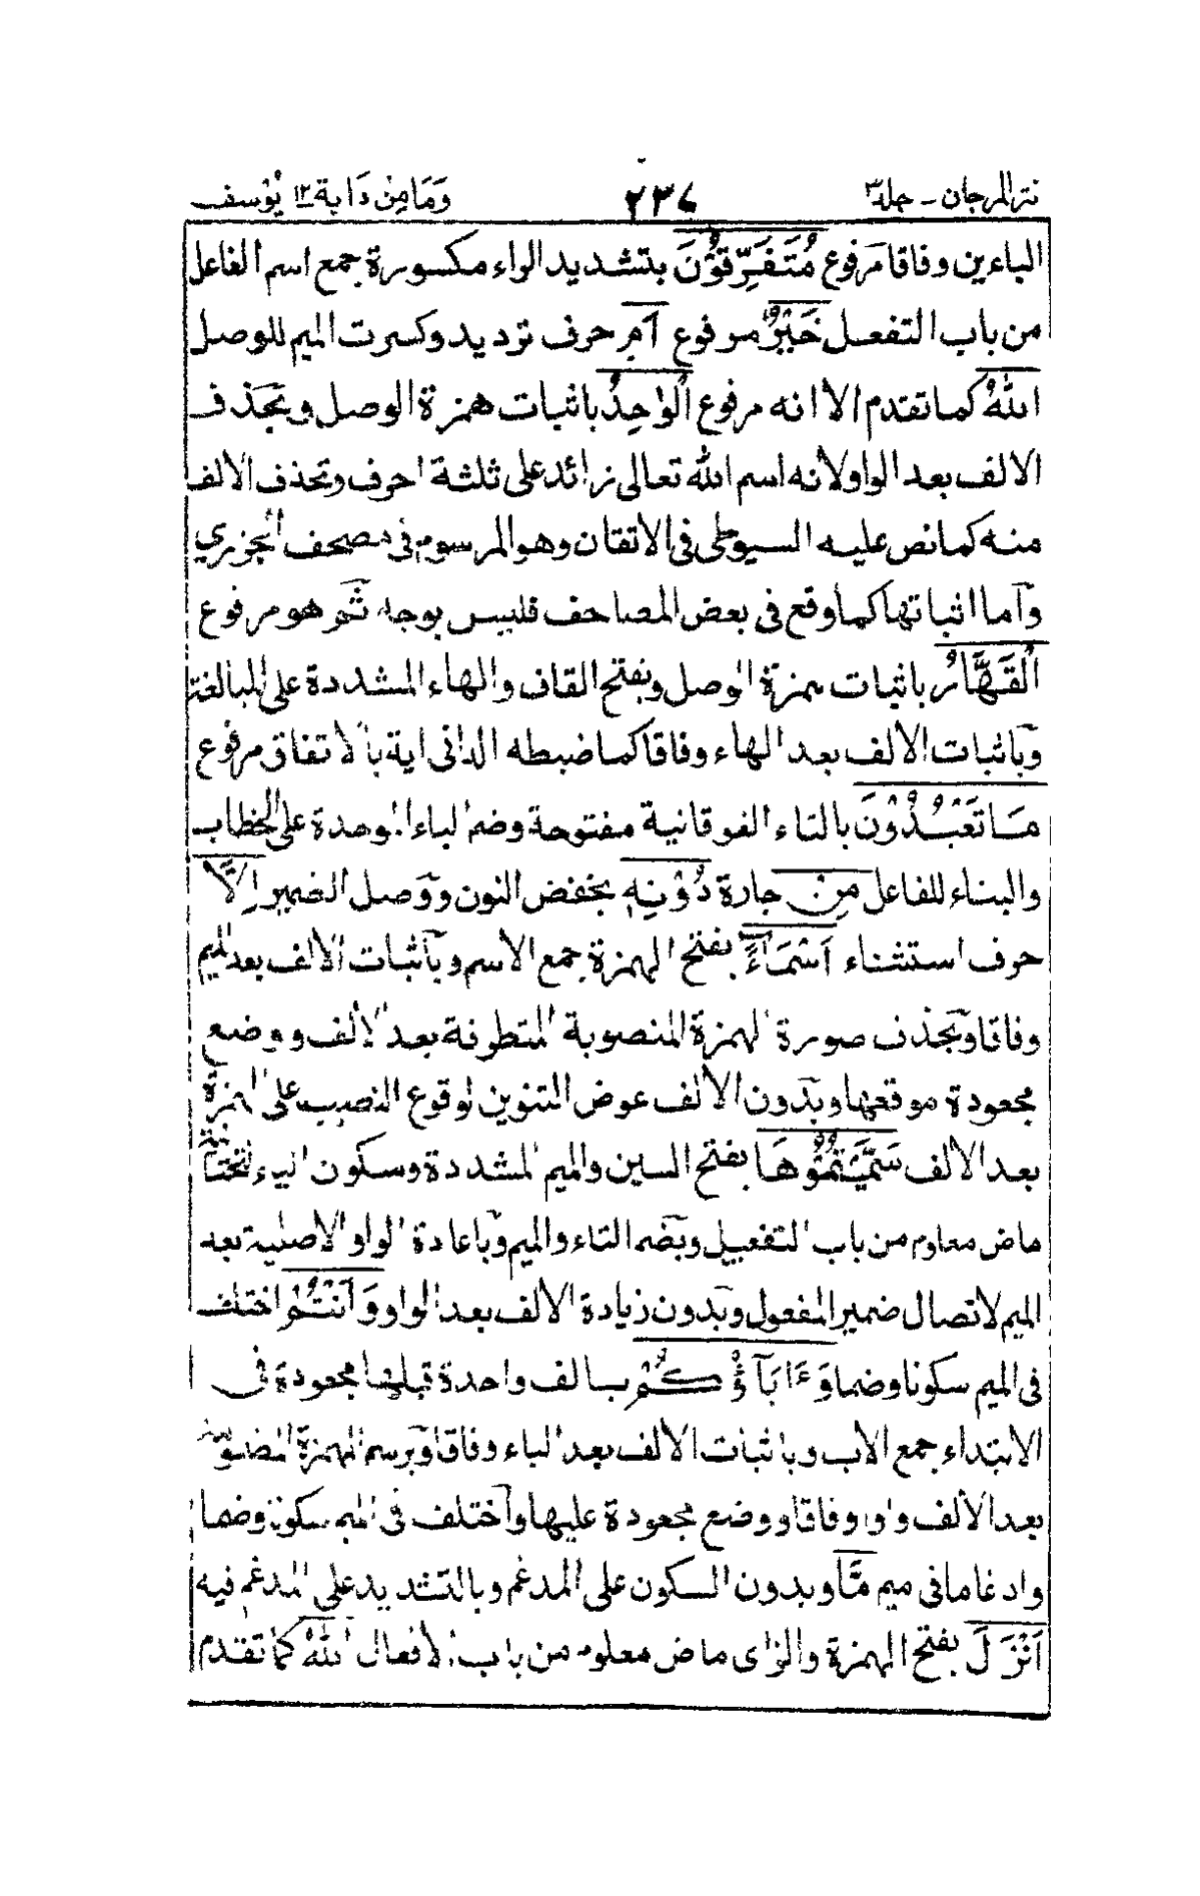 نثر المرجان - جلد ٣ ٢٣٧ وَمَا مِنْ دَابة ١٢ يُوْسف
الباءين وفاقا مرفوع مُتَفَرِّقُوْنَ بتشديد الراء مكسورة جمع اسم الفاعل
من باب التفعل خَيْرٌ مرفوع اَمِ حرف ترديد وكسرت الميم للوصل
اللهُ كما تقدم الا انه مرفوع الْوٰحِدُ باثبات همزة الوصل وبحذف
الالف بعد الواو لانه اسم الله تعالى زائد على ثلثة احرف وتحذف الالف
منه كما نص عليه السيوطى فى الاتقان وهو المرسوم فى مصحف الجزري
وآما اثباتها كما وقع فى بعض المصاحف فليس بوجه ثم هو مرفوع
الْقَهَّارُ باثبات همزة الوصل وبفتح القاف والهاء المشددة على المبالغة
وبآثبات الالف بعد الهاء وفاقا كما ضبطه الدانى اية بالاتفاق مرفوع
مَا تَعْبُدُوْنَ بالتاء الفوقانية مفتوحة وضم الباء الموحدة على الخطاب
والبناء للفاعل مِنْ جارة دُوْنِهٖ بخفض النون ووصل الضمير اِلَّا
حرف استثناء اَسْمَآءً بفتح الهمزة جمع الاسم وبآثبات الالف بعد الميم
وفاقا وبحذف صورة الهمزة المنصوبة المتطرفة بعد الالف ووضع
مجعودة موقعها وبدون الالف عوض التنوين لوقوع النصب على الهمزة
بعد الالف سَمَّيْتُمُوْهَا بفتح السين والميم المشددة وسكون الياء التحتانية
ماض معلوم من باب التفعيل وبضم التاء والميم وباعادة الواو الاصلية بعد
الميم لاتصال ضمير المفعول وبدون زيادة الالف بعد الواو وَاَنْتُمْ اختلف
فى الميم سكونا وضما وَءَابَآؤُكُمْ بالف واحدة قبلها مجعودة فى
الابتداء جمع الاب وباثبات الالف بعد الباء وفاقا وبرسم الهمزة المضمومة
بعد الالف واو وفاقا ووضع مجعودة عليها وآختلف فى الميم سكونا وضما
وادغاما فى ميم مَّا وبدون السكون على المدغم وبالتشديد على المدغم فيه
اَنْزَلَ بفتح الهمزة والزاى ماض معلوم من باب الافعال اللهُ كما تقدم